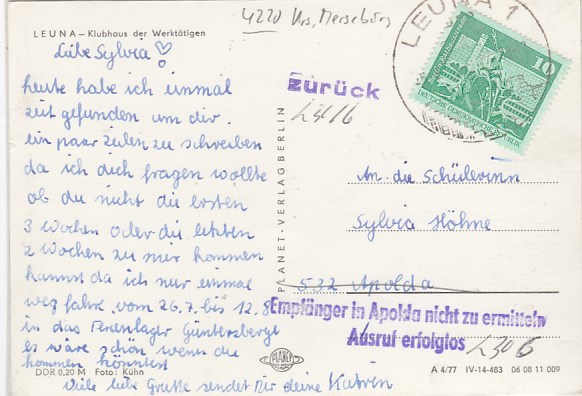 4220 Krs. Merseburg
LEUNA – Klubhaus der Werktätigen
LEUNA 1
10
DEUTSCHE DEMOKRATISCHE REPUBLIK
Liebe Sylvia!
zurück
heute habe ich einmal
zeit gefunden um dir
ein paar zeilen zu schreiben
da ich dich fragen wollte
ob du nicht die ersten
3 Wochen oder die letzten
2 Wochen zu mir kommen
kannst da ich nur einmal
weg fahre vom 26.7. bis 12.8
in das Ferienlager Güntersberge
es wäre schön wenn du
kommen könntest
Viele liebe Grüße sendet Dir deine Katrin
PLANET-VERLAG BERLIN
An die Schülerinn
Sylvia Höhne
532 Apolda
Empfänger in Apolda nicht zu ermitteln
Ausruf erfolglos
PLANET
DDR 0,20 M Foto: Kühn
A 4/77 IV-14-483 06 08 11 009